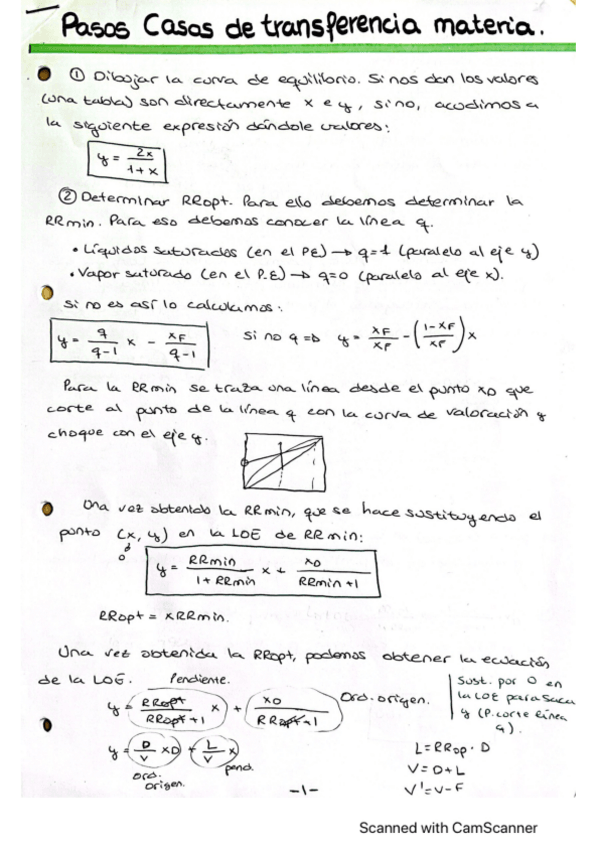 Pasos Casos de transferencia materia.
① Dibujar la curva de equilibrio. Si nos dan los valores
(una tabla) son directamente x e y, si no, acudimos a
la siguiente expresión dándole valores:
y = 2x / 1+x
② Determinar RRopt. Para ello debemos determinar la
RRmin. Para eso debemos conocer la línea q.
• Líquidos saturados (en el P.E) → q=1 (paralelo al eje y)
• Vapor saturado (en el P.E) → q=0 (paralelo al eje x).
Si no es así lo calculamos:
y = q / q-1 x - xF / q-1 si no q => y = xF / xF - (1-xF / xF) x
Para la RRmin se traza una línea desde el punto xD que
corte al punto de la línea q con la curva de valoración y
choque con el eje y.
Una vez obtenido la RRmin, que se hace sustituyendo el
punto (x, y) en la LOE de RRmin:
0
y = RRmin / 1+RRmin x + xD / RRmin+1
RRopt = xRRmin.
Una vez obtenida la RRopt, podemos obtener la ecuación
de la LOE. Pendiente.
y = RRopt / RRopt+1 x + xD / RRopt+1 Ord. origen.
Sust. por 0 en
la LOE para saca
y (P. corte línea
q).
y = D / V xD + L / V x
ord. origen. pend.
L = RRop · D
V = D+L
V' = V-F
-1-
Scanned with CamScanner